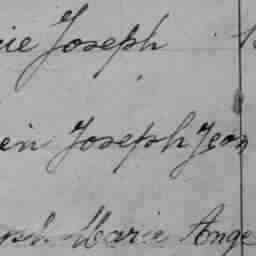 ie Joseph
en Joseph Jean
ph Marie Ange